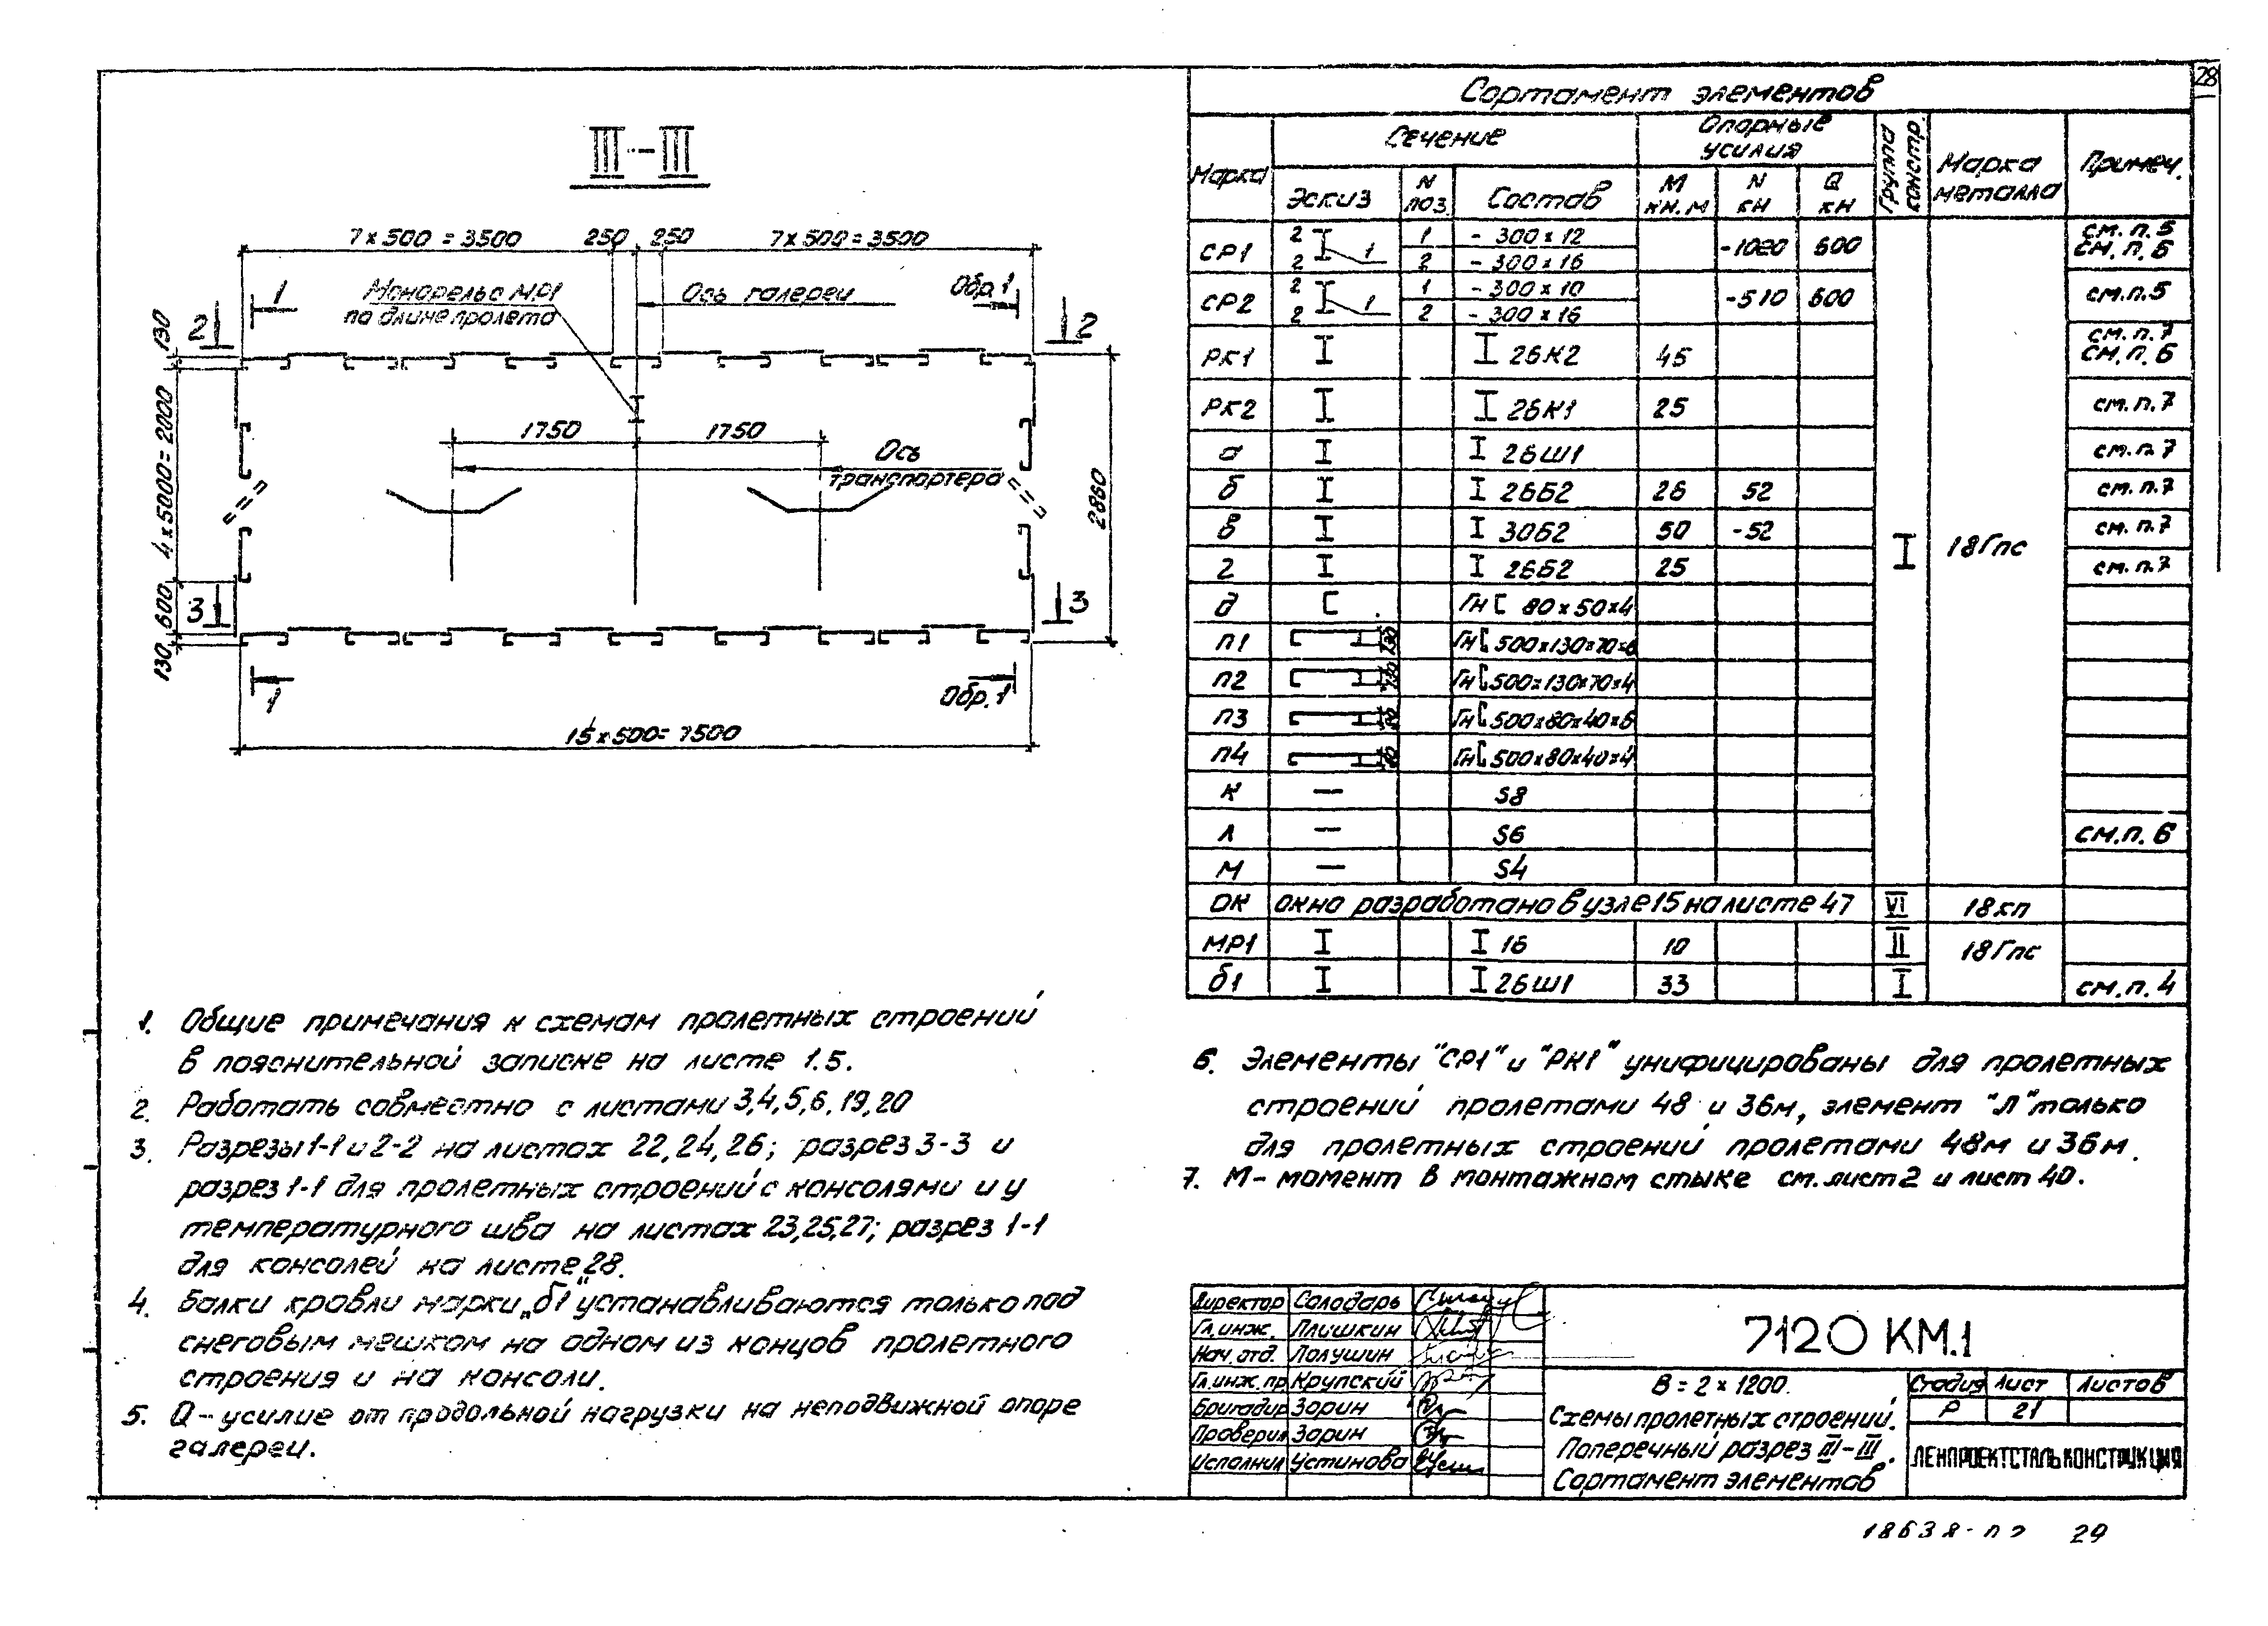 28
III-III
7 x 500 = 3500 250 250 7 x 500 = 3500
1 Монорельс МР1 Ось галереи Обр. 1
по длине пролета
2 2
130
4 x 5000 = 2000
600
130
1750 1750
Ось
транспортера
2860
3 3
1 Обр. 1
15 x 500 = 7500
Сортамент элементов
Марка Сечение Опорные усилия Группа констр. Марка металла Примеч.
Эскиз N поз. Состав М кн.м N кн Q кн
СР1 2 2 1 1 - 300 x 12 -1020 600 см. п. 5
2 - 300 x 16 см. п. 6
СР2 2 2 1 1 - 300 x 10 -510 600 см.п.5
2 - 300 x 16
РК1 I I 26К2 45 см. п. 7
см. п. 6
РК2 I I 26К1 25 см. п. 7
а I I 26Ш1 см. п. 7
б I I 26Б2 26 52 см. п. 7
в I I 30Б2 50 -52 см. п. 7
I 18Гпс
г I I 26Б2 25 см. п. 7
д [ Гн [ 80 x 50 x 4
п1 Гн [ 500 x 130 x 70 x 6
п2 Гн [ 500 x 130 x 70 x 4
п3 Гн [ 500 x 80 x 40 x 6
п4 Гн [ 500 x 80 x 40 x 4
К — S8
Л — S6 см. п. 6
М — S4
ОК окно разработано в узле 15 на листе 47 VI 18кп
МР1 I I 16 10 II 18Гпс
б1 I I 26Ш1 33 I см. п. 4
1. Общие примечания к схемам пролетных строений
в пояснительной записке на листе 1.5.
2. Работать совместно с листами 3,4,5,6,19,20
3. Разрезы 1-1 и 2-2 на листах 22,24,26; разрез 3-3 и
разрез 1-1 для пролетных строений с консолями и у
температурного шва на листах 23,25,27; разрез 1-1
для консолей на листе 28.
4. Балки кровли марки „б1" устанавливаются только под
снеговым мешком на одном из концов пролетного
строения и на консоли.
5. Q - усилие от продольной нагрузки на неподвижной опоре
галереи.
6. Элементы "СР1" и "РК1" унифицированы для пролетных
строений пролетами 48 и 36м, элемент "Л" только
для пролетных строений пролетами 48м и 36м.
7. М - момент в монтажном стыке см. лист 2 и лист 40.
Директор Солодарь
Гл. инж. Плишкин
Нач. отд. Полушин
Гл. инж. пр. Крупский
Бригадир Зорин
Проверил Зорин
Исполнил Устинова
7120 КМ.1
В = 2 x 1200.
Схемы пролетных строений.
Поперечный разрез III-III.
Сортамент элементов
Стадия Лист Листов
Р 21
ЛЕНПРОЕКТСТАЛЬКОНСТРУКЦИЯ
29